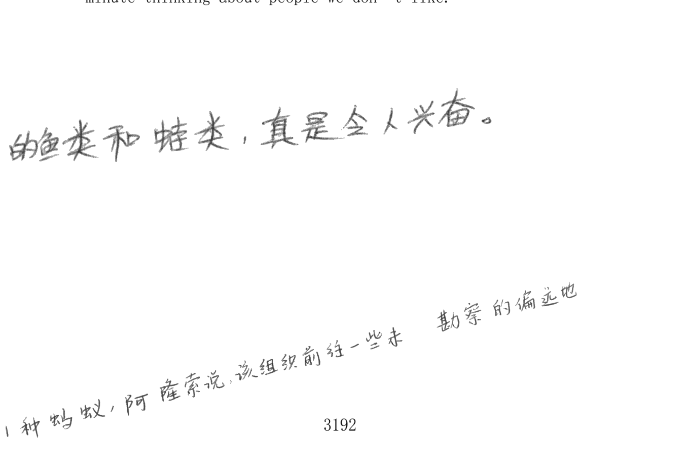 minute thinking about people we don't like.
的鱼类和蛙类，真是令人兴奋。
1种蚂蚁，阿隆索说，该组织前往一些未勘察的偏远地
3192